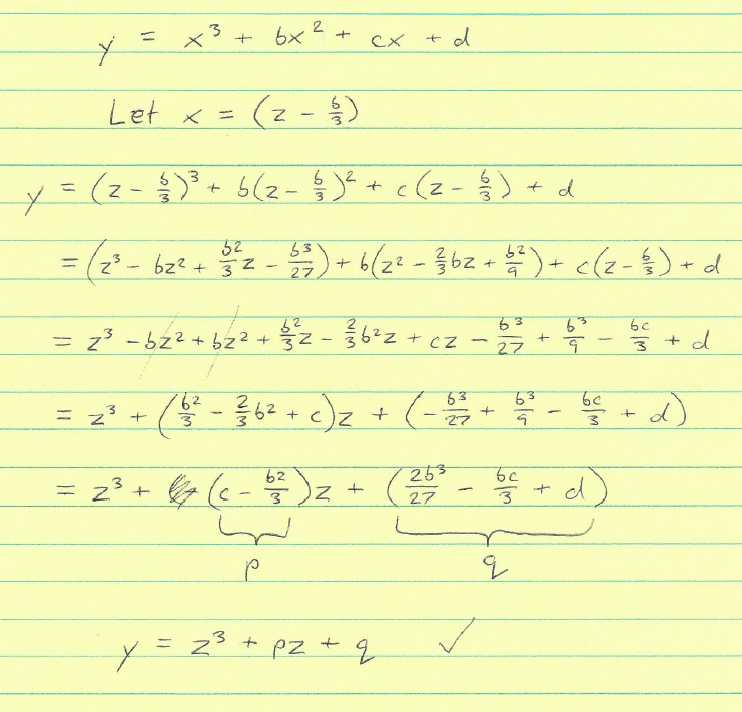 y = x³ + bx² + cx + d
Let x = (z - b/3)
y = (z - b/3)³ + b(z - b/3)² + c(z - b/3) + d
= (z³ - bz² + b²/3 z - b³/27) + b(z² - 2/3 bz + b²/9) + c(z - b/3) + d
= z³ - bz² + bz² + b²/3 z - 2/3 b²z + cz - b³/27 + b³/9 - bc/3 + d
= z³ + (b²/3 - 2/3 b² + c)z + (-b³/27 + b³/9 - bc/3 + d)
= z³ + (c - b²/3)z + (2b³/27 - bc/3 + d)
p q
y = z³ + pz + q ✓